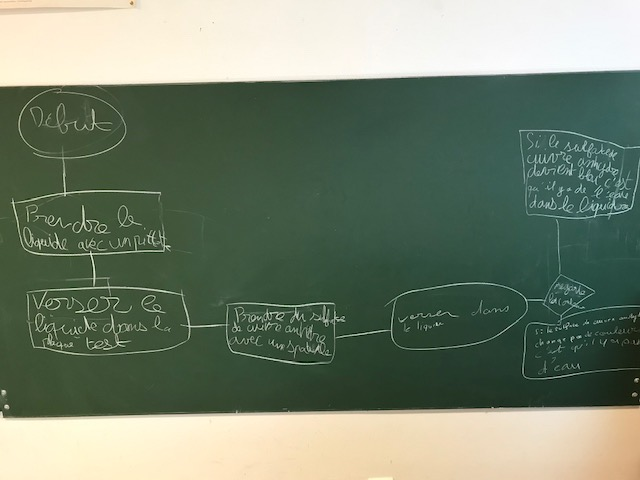 Début
Prendre le
liquide avec un
Verser le
liquide dans la
plaque test
Prendre du
de cuivre
avec un
verser dans
le liquide
regarde
Si le
cuivre anhydre
devient bleu c'est
qu'il y a de l'eau
dans le liquide
si le sulfate de cuivre
change pas de couleur
c'est qu'il y a pas
d'eau